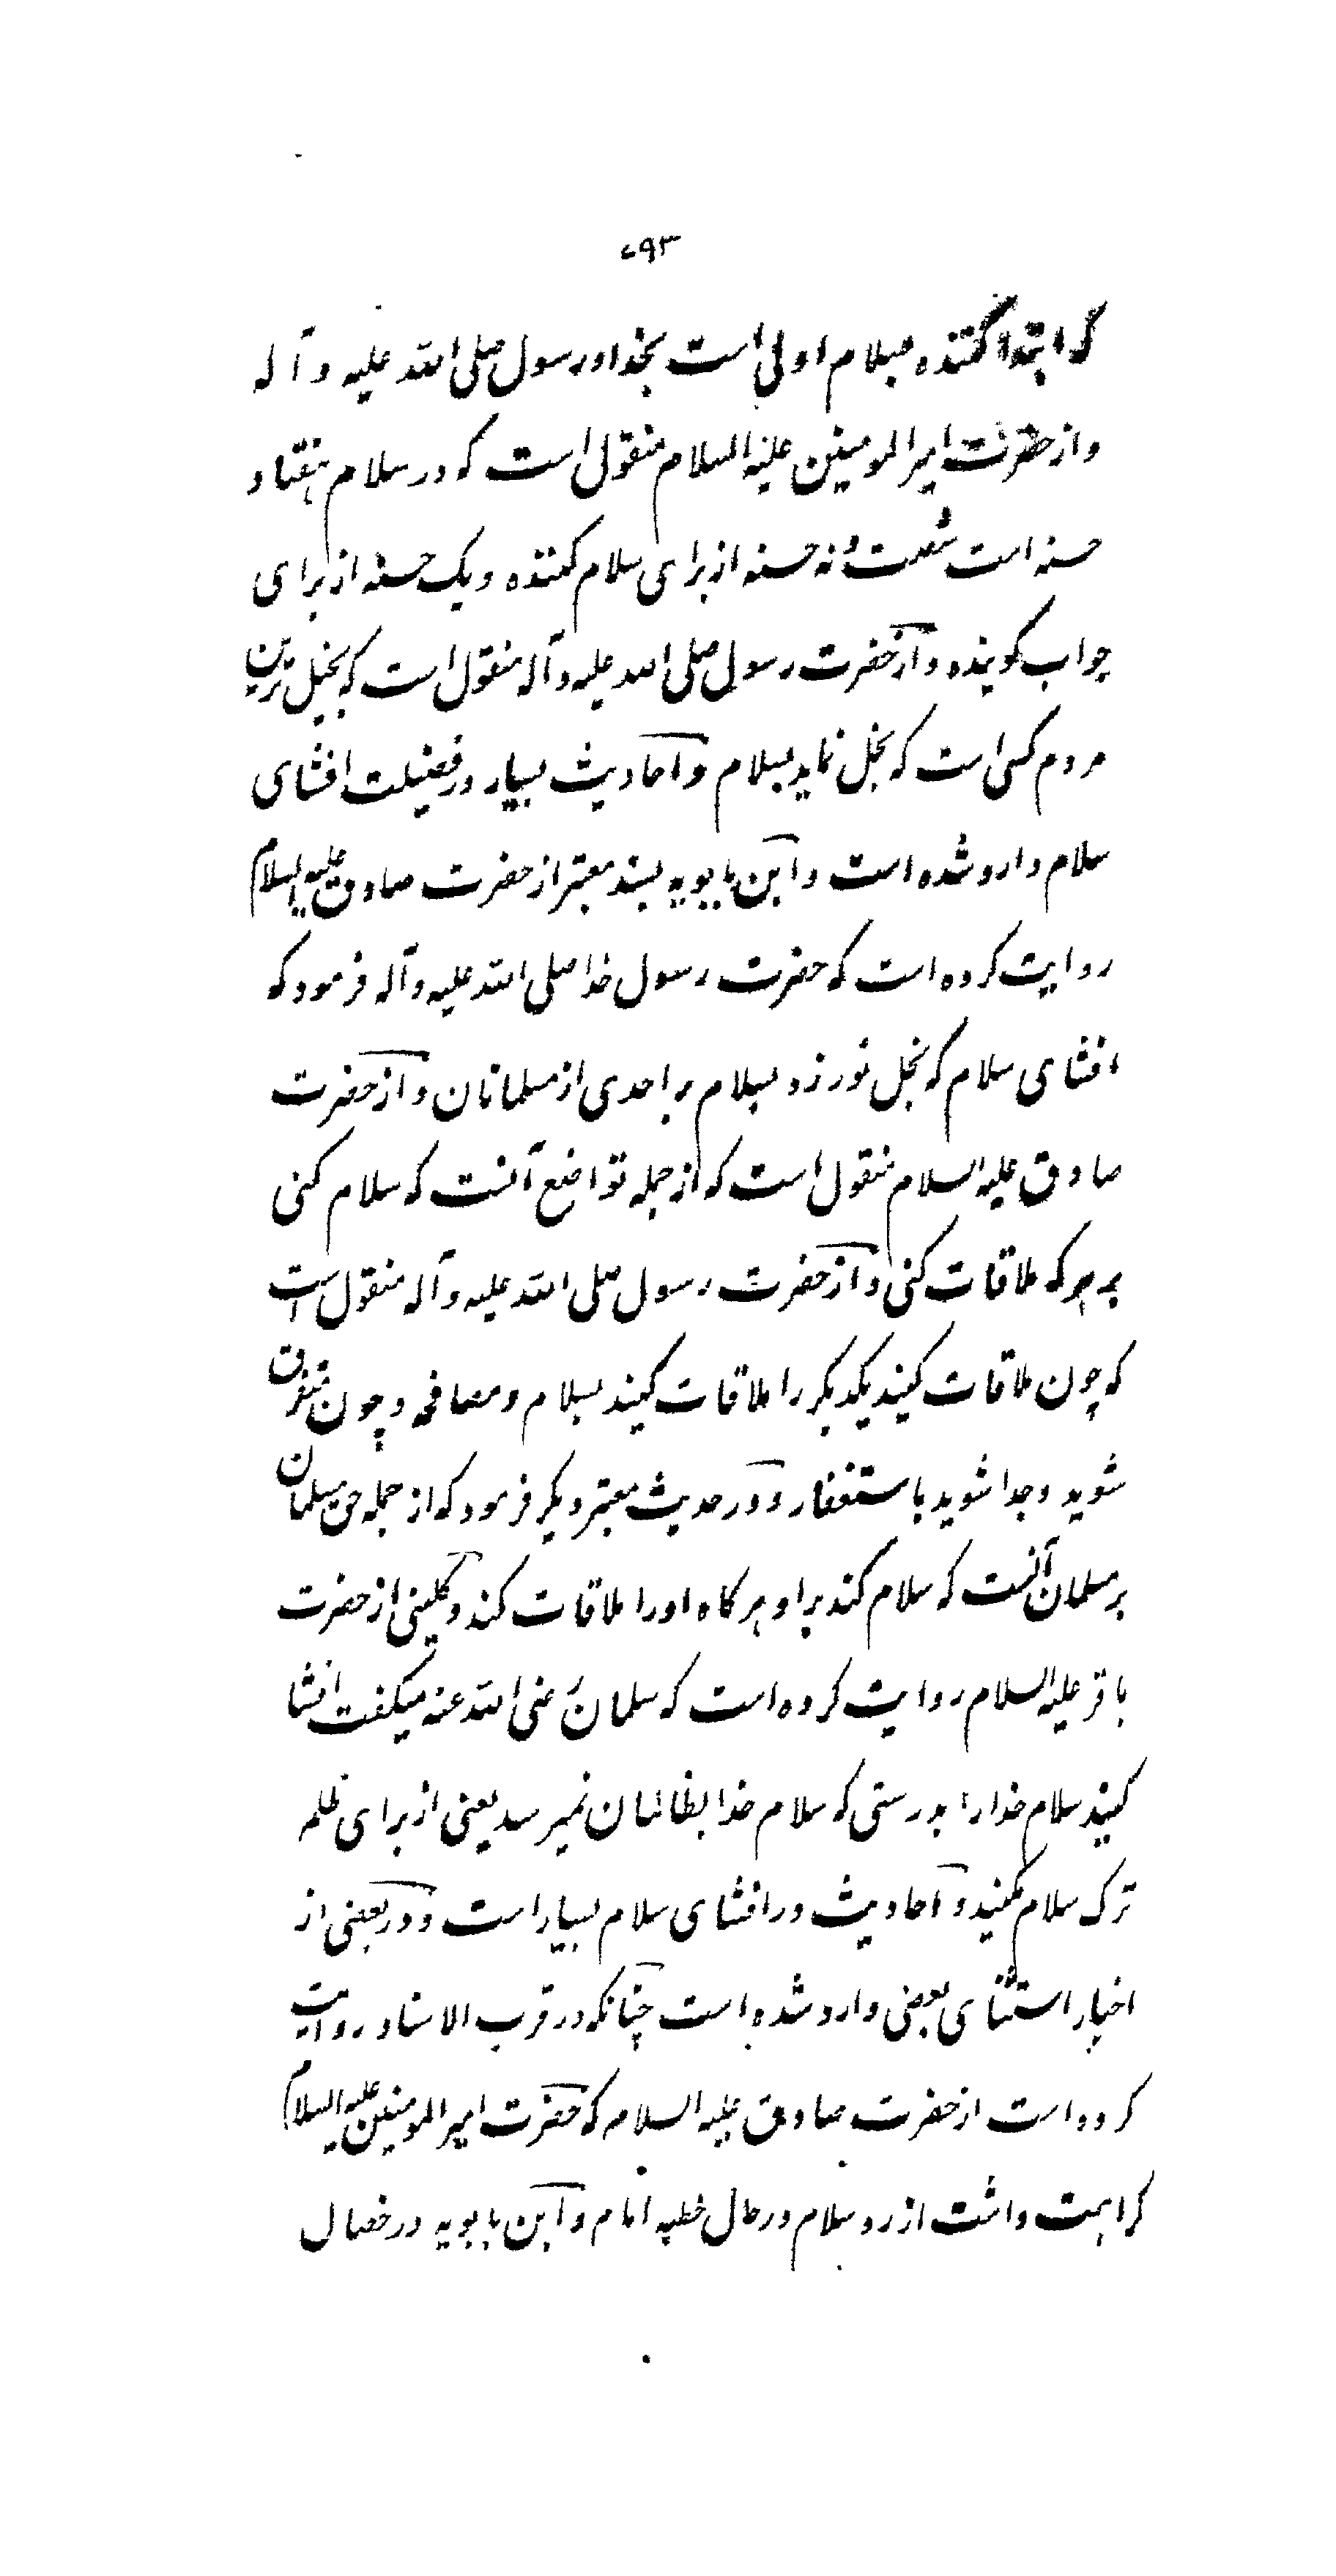 ۷۹۳
که ابتدا کننده بسلام اولی است بخدا و رسول صلی الله علیه و آله
و از حضرت امیر المومنین علیه السلام منقول است که در سلام هفتاد
حسنه است شصت و نه حسنه از برای سلام کننده و یک حسنه از برای
جواب کوینده و از حضرت رسول صلی الله علیه و آله منقول است که بخیل ترین
مردم کسی است که بخل نماید بسلام و احادیث بسیار در فضیلت افشای
سلام وارد شده است و ابن بابویه بسند معتبر از حضرت صادق علیه السلام
روایت کرده است که حضرت رسول خدا صلی الله علیه و آله فرمود که
افشای سلام که بخل نورزد بسلام بر احدی از مسلمانان و از حضرت
صادق علیه السلام منقول است که از جمله تواضع آنست که سلام کنی
بر هر که ملاقات کنی و از حضرت رسول صلی الله علیه و آله منقول است
که چون ملاقات کنید یکدیکر را ملاقات کنید بسلام و مصافحه و چون متفرق
شوید و جدا شوید باستغفار و در حدیث معتبر دیکر فرمود که از جمله حق مسلمان
بر مسلمان آنست که سلام کند بر او هر کاه او را ملاقات کند و کلینی از حضرت
باقر علیه السلام روایت کرده است که سلمان رضی الله عنه میکفت افشا
کنید سلام خدا را بدرستی که سلام خدا بظالمان نمیرسد یعنی از برای ظلمه
ترک سلام مکنید و احادیث در افشای سلام بسیار است و در بعضی از
اخبار استثنای بعضی وارد شده است چنانکه در قرب الاسناد روایت
کرده است از حضرت صادق علیه السلام که حضرت امیر المومنین علیه السلام
کراهت داشت از رد سلام در حال خطبه امام و ابن بابویه در خصال